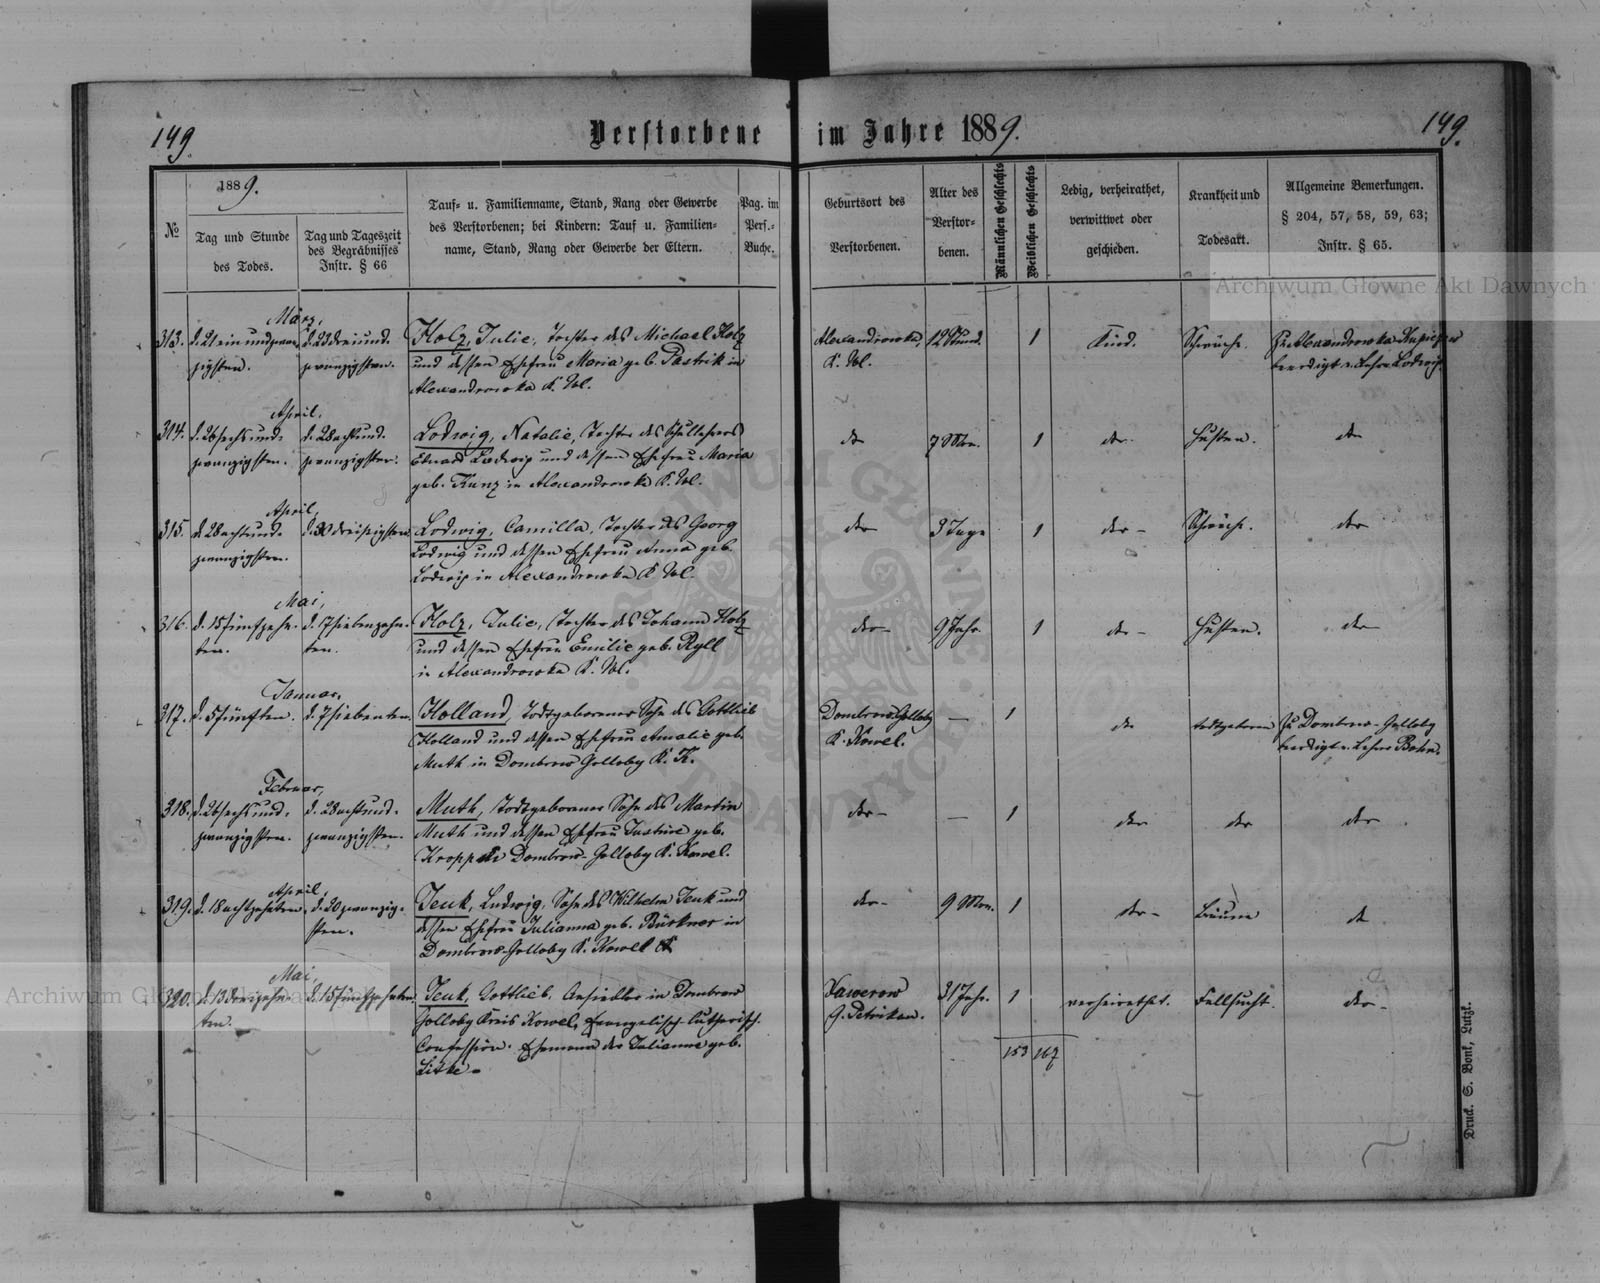 149.
Verstorbene im Jahre 1889.
149.
№
1889.
Tag und Stunde
des Todes.
Tag und Tageszeit
des Begräbnisses
Instr. § 66
Tauf- u. Familienname, Stand, Rang oder Gewerbe
des Verstorbenen; bei Kindern: Tauf u. Familien-
name, Stand, Rang oder Gewerbe der Eltern.
Pag. im
Pers.-
Buche.
Geburtsort des
Verstorbenen.
Alter des
Verstor-
benen.
Männlichen Geschlechts
Weiblichen Geschlechts
Ledig, verheirathet,
verwittwet oder
geschieden.
Krankheit und
Todesart.
Allgemeine Bemerkungen.
§ 204, 57, 58, 59, 63;
Instr. § 65.
Archiwum Główne Akt Dawnych
März,
313.
d. 21 ein und zwan-
zigsten.
d. 23 dreiund-
zwanzigsten.
Holz, Julie, Tochter des Michael Holz
und dessen Ehefrau Maria geb. Pastrik in
Alexandrowka K. Wl.
Alexandrowka,
K. Wl.
12 Stund.
1
Kind.
Schwäche.
Zu Alexandrowka
beerdigt v. Lehrer Lodwig.
April,
314.
d. 26 sechsund-
zwanzigsten.
d. 28 achtund-
zwanzigsten.
Lodwig, Natalie, Tochter des Schullehrers
Eduard Lodwig und dessen Ehefrau Maria
geb. Kunz in Alexandrowka K. Wl.
do
7 Mon.
1
do
Husten.
do
April,
315.
d. 28 achtund-
zwanzigsten.
d. 30 dreißigsten
Lodwig, Camilla, Tochter des Georg
Lodwig und dessen Ehefrau Anna geb.
Lodwig in Alexandrowka K. Wl.
do
3 Tage
1
do
Schwäche.
do
Mai,
316.
d. 15 fünfzehn-
ten.
d. 17 siebenzehn-
ten.
Holz, Julie, Tochter des Johann Holz
und dessen Ehefrau Emilie geb. Ryll
in Alexandrowka K. Wl.
do
9 Jahr.
1
do
Husten.
do
Januar,
317.
d. 5 fünften.
d. 7 siebenten.
Holland, Todtgeborener Sohn des Gottlieb
Holland und dessen Ehefrau Amalie geb.
Muth in Dombrow Golloby K. K.
Dombrow Golloby
K. Kowel.
—
1
do
todtgeboren
Zu Dombrow-Golloby
beerdigt v. Lehrer
Februar,
318.
d. 26 sechsund-
zwanzigsten.
d. 28 achtund-
zwanzigsten.
Muth, Todtgeborener Sohn des Martin
Muth und dessen Ehefrau Justine geb.
Kropp in Dombrow-Golloby K. Kowel.
do
—
1
do
do
do
April,
319.
d. 18 achtzehnten
d. 20 zwanzig-
sten.
Jeuk, Ludwig, Sohn des Wilhelm Jeuk und
dessen Ehefrau Julianna geb. Bürkner in
Dombrow-Golloby K. Kowel
do
9 Mon.
1
do
Bräune
do
Mai,
320.
d. 13 dreizehn-
ten.
d. 15 fünfzehnten.
Jeuk, Gottlieb, Ansiedler in Dombrow
Golloby Kreis Kowel, Evangelisch-lutherisch.
Confession. Ehemann der Julianne geb.
Litke
Xawerow
G. Petrikau.
31 Jahr.
1
verheirathet.
Fallsucht.
do
153 167
Druck. S. Bonk, Lutzk.